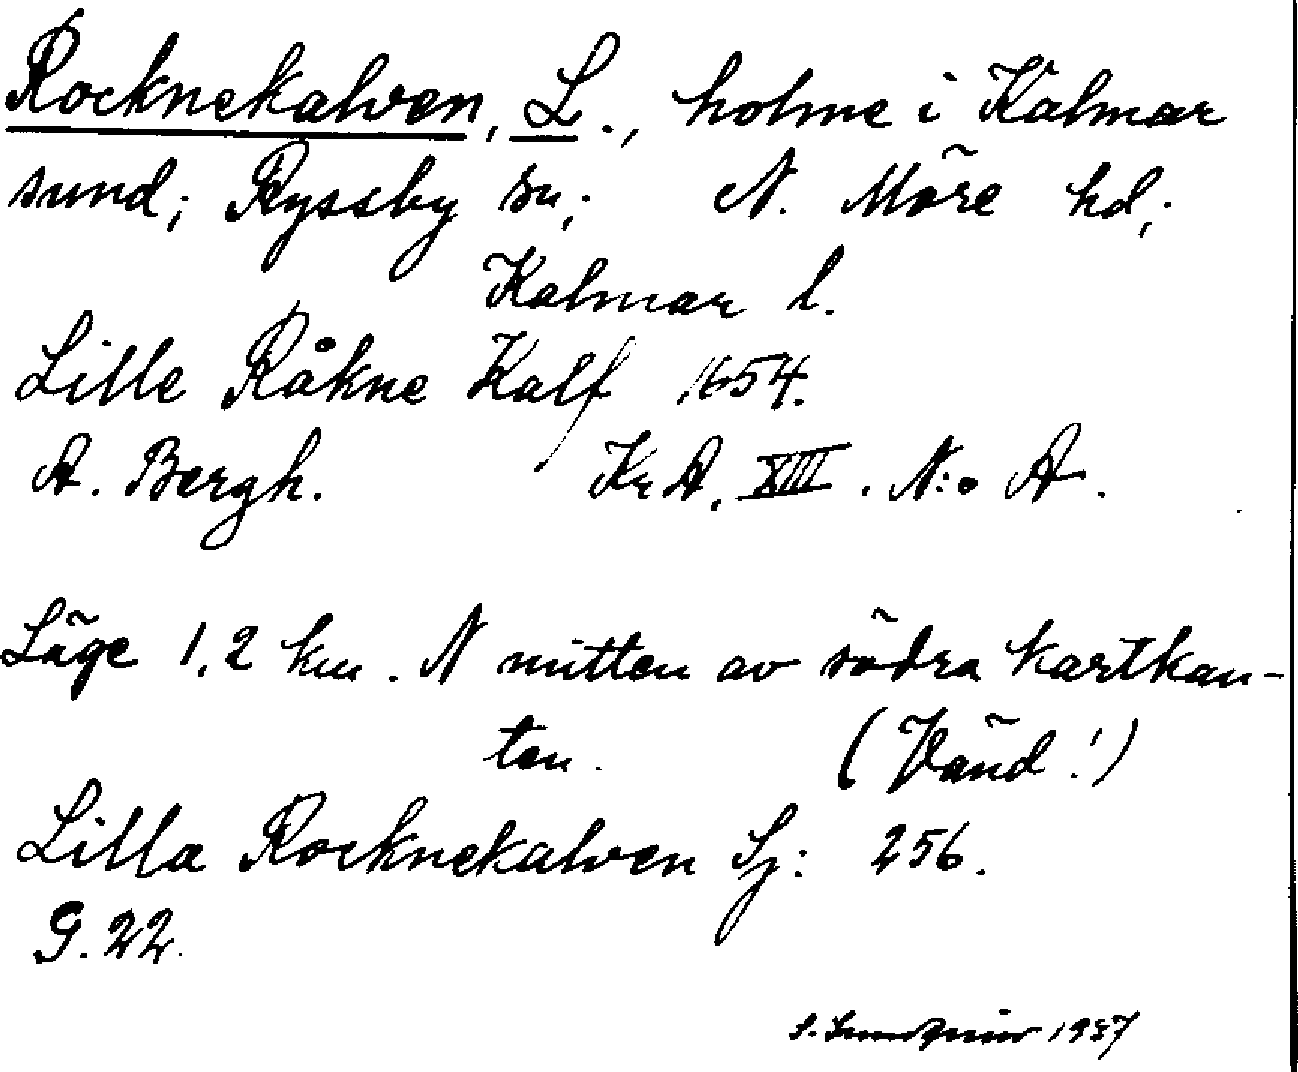 Rocknekalven, L., holme i Kalmar
sund; Ryssby sn; N. Möre hd;
Kalmar l.
Lille Råkne Kalf 1654.
A. Bergh. Kr A. XIII. N:o A.
Läge 1,2 km. N mitten av södra kartkan-
ten. (Vänd!)
Lilla Rocknekalven Sj: 256.
G. 22.
S. 1937